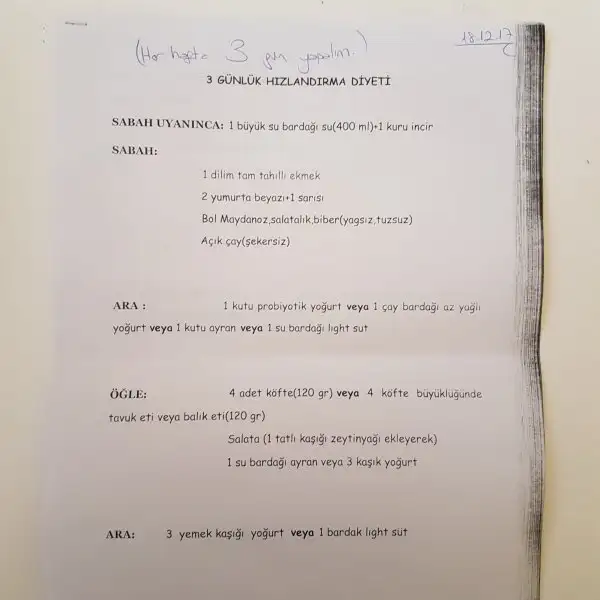 18.12.17
(Her hafta 3 gün yapalım.)
3 GÜNLÜK HIZLANDIRMA DİYETİ
SABAH UYANINCA: 1 büyük su bardağı su(400 ml)+1 kuru incir
SABAH:
1 dilim tam tahıllı ekmek
2 yumurta beyazı+1 sarısı
Bol Maydanoz,salatalık,biber(yagsız,tuzsuz)
Açık çay(şekersiz)
ARA : 1 kutu probiyotik yoğurt veya 1 çay bardağı az yağlı
yoğurt veya 1 kutu ayran veya 1 su bardağı lıght sut
ÖĞLE: 4 adet köfte(120 gr) veya 4 köfte büyüklüğünde
tavuk eti veya balık eti(120 gr)
Salata (1 tatlı kaşığı zeytinyağı ekleyerek)
1 su bardağı ayran veya 3 kaşık yoğurt
ARA: 3 yemek kaşığı yoğurt veya 1 bardak lıght süt